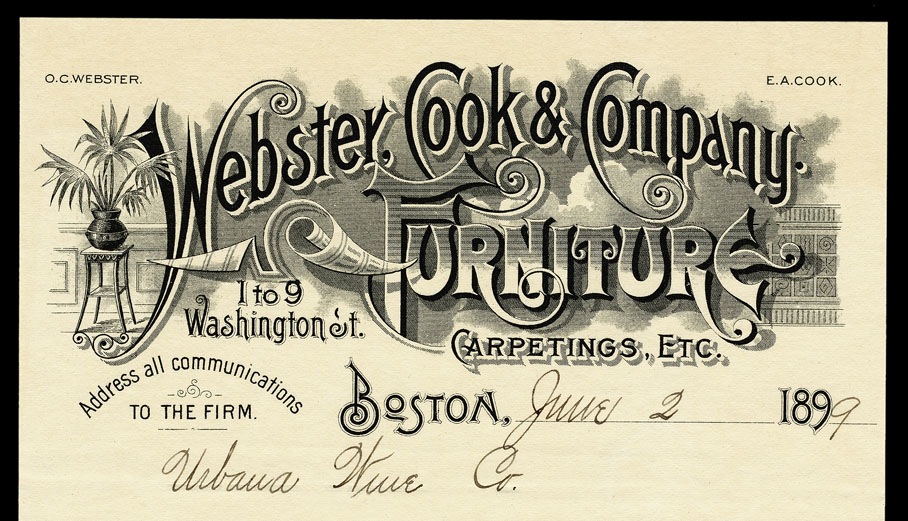 O.C.WEBSTER.
E.A.COOK.
Webster, Cook & Company.
FURNITURE
1 to 9
Washington St.
CARPETINGS, ETC.
Address all communications
TO THE FIRM.
BOSTON, June 2 1899
Urbana Wine Co.